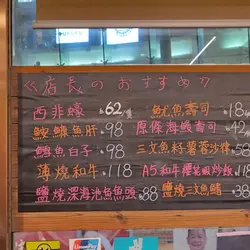 店長のおすすめ
西非蠔 $62/隻
鮟鱇魚肝 $98
鱈魚白子 $98
薄燒和牛 $118
鹽燒深海池魚魚頭 $88
魷魚壽司 $18
原條海鰻壽司 $42
三文魚籽蓉蓉沙律
A5和牛櫻花蝦炒飯
鹽燒三文魚鰭 $38